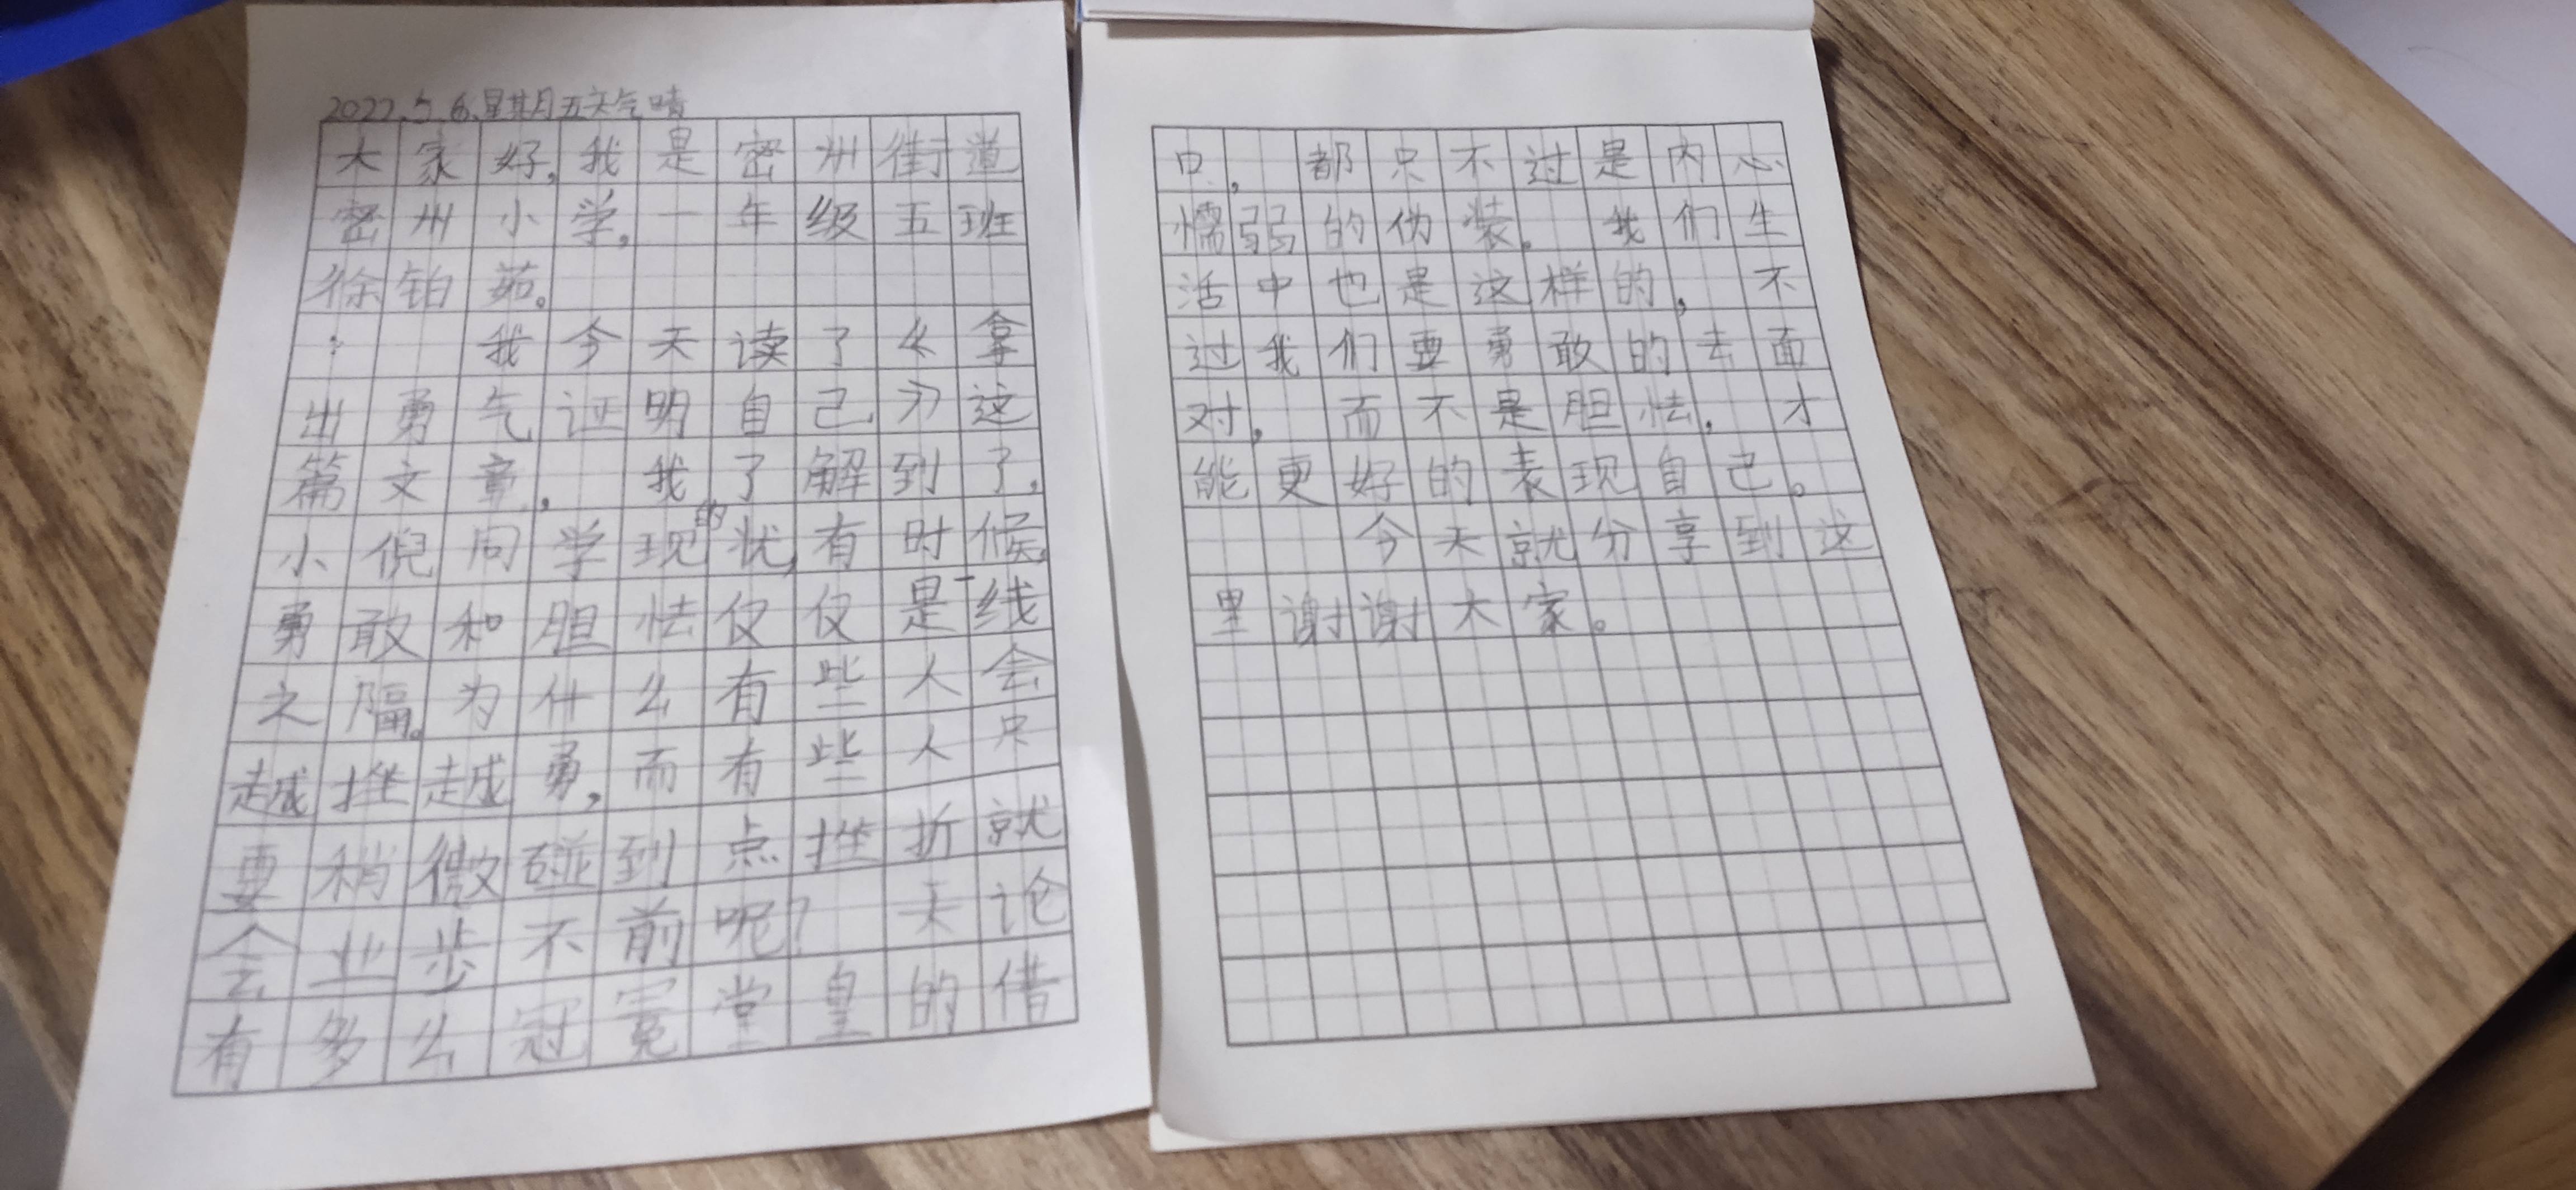 2022.5.6.星期五天气晴
大家好,我是密州街道
密州小学,一年级五班
徐铂茹。
我今天读了《拿
出勇气证明自己》这
篇文章,我了解到了,
小倪同学现的状,有时候,
勇敢和胆怯仅仅是一线
之隔。为什么有些人会
越挫越勇,而有些人只
要稍微碰到点挫折就
会止步不前呢?无论
有多么冠冕堂皇的借
口,都只不过是内心
懦弱的伪装。我们生
活中也是这样的,不
过我们要勇敢的去面
对,而不是胆怯,才
能更好的表现自己。
今天就分享到这
里谢谢大家。